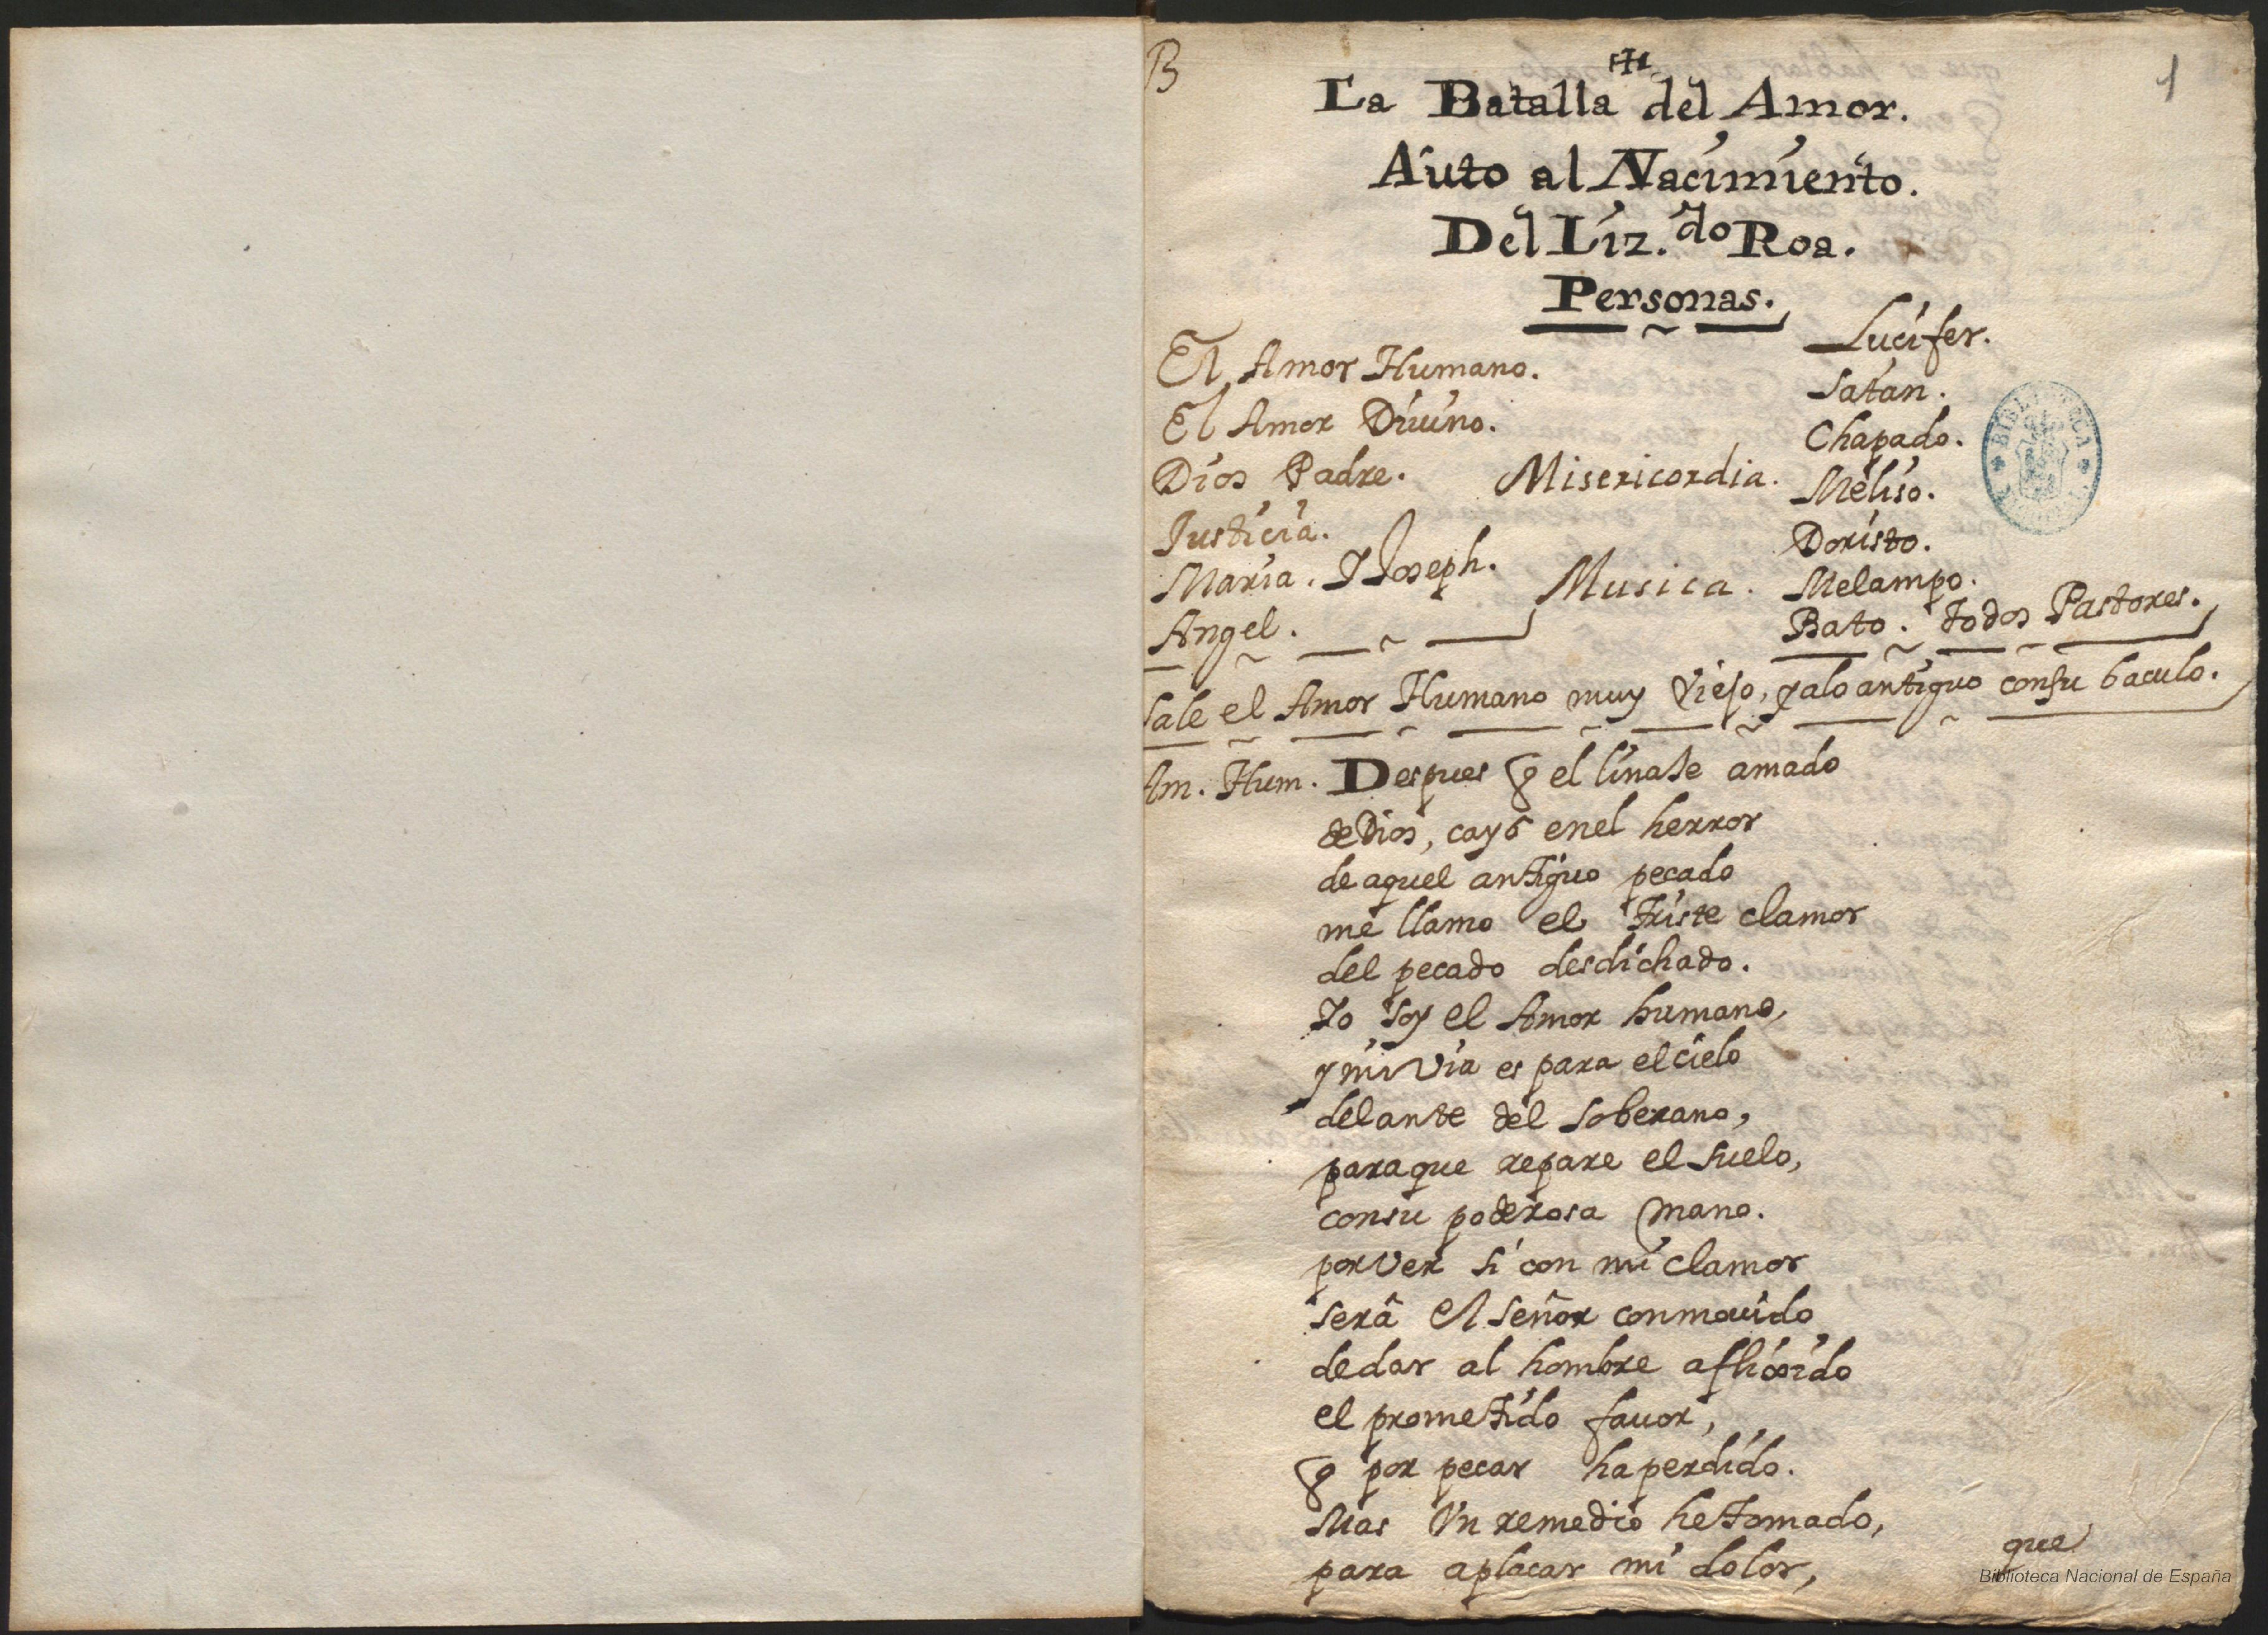 B
1
La Batalla del Amor.
Auto al Nacimiento.
Del Liz.do Roa.
Personas.
El Amor Humano.
El Amor Diuino.
Dios Padre. Misericordia.
Justicia.
Maria. Y Joseph. Musica.
Angel.
Lucifer.
Satan.
Chapado.
Meliso.
Doristo.
Melampo.
Bato. todos Pastores.
Sale el Amor Humano muy viejo, y alo antiguo consu baculo.
Am. Hum. Despues q el linaje amado
de Dios, cayó enel herror
de aquel antiguo pecado
me llamo el triste clamor
del pecado desdichado.
Yo soy el Amor humano,
y mi via es para el cielo
delante del soberano,
paraque repare el suelo,
consu poderosa mano.
por ver si con mi clamor
será el señor conmouido
de dar al hombre aflixido
el prometido fauor,
q por pecar ha perdido.
Mas vn remedio he tomado,
para aplacar mi dolor,
que
Biblioteca Nacional de España